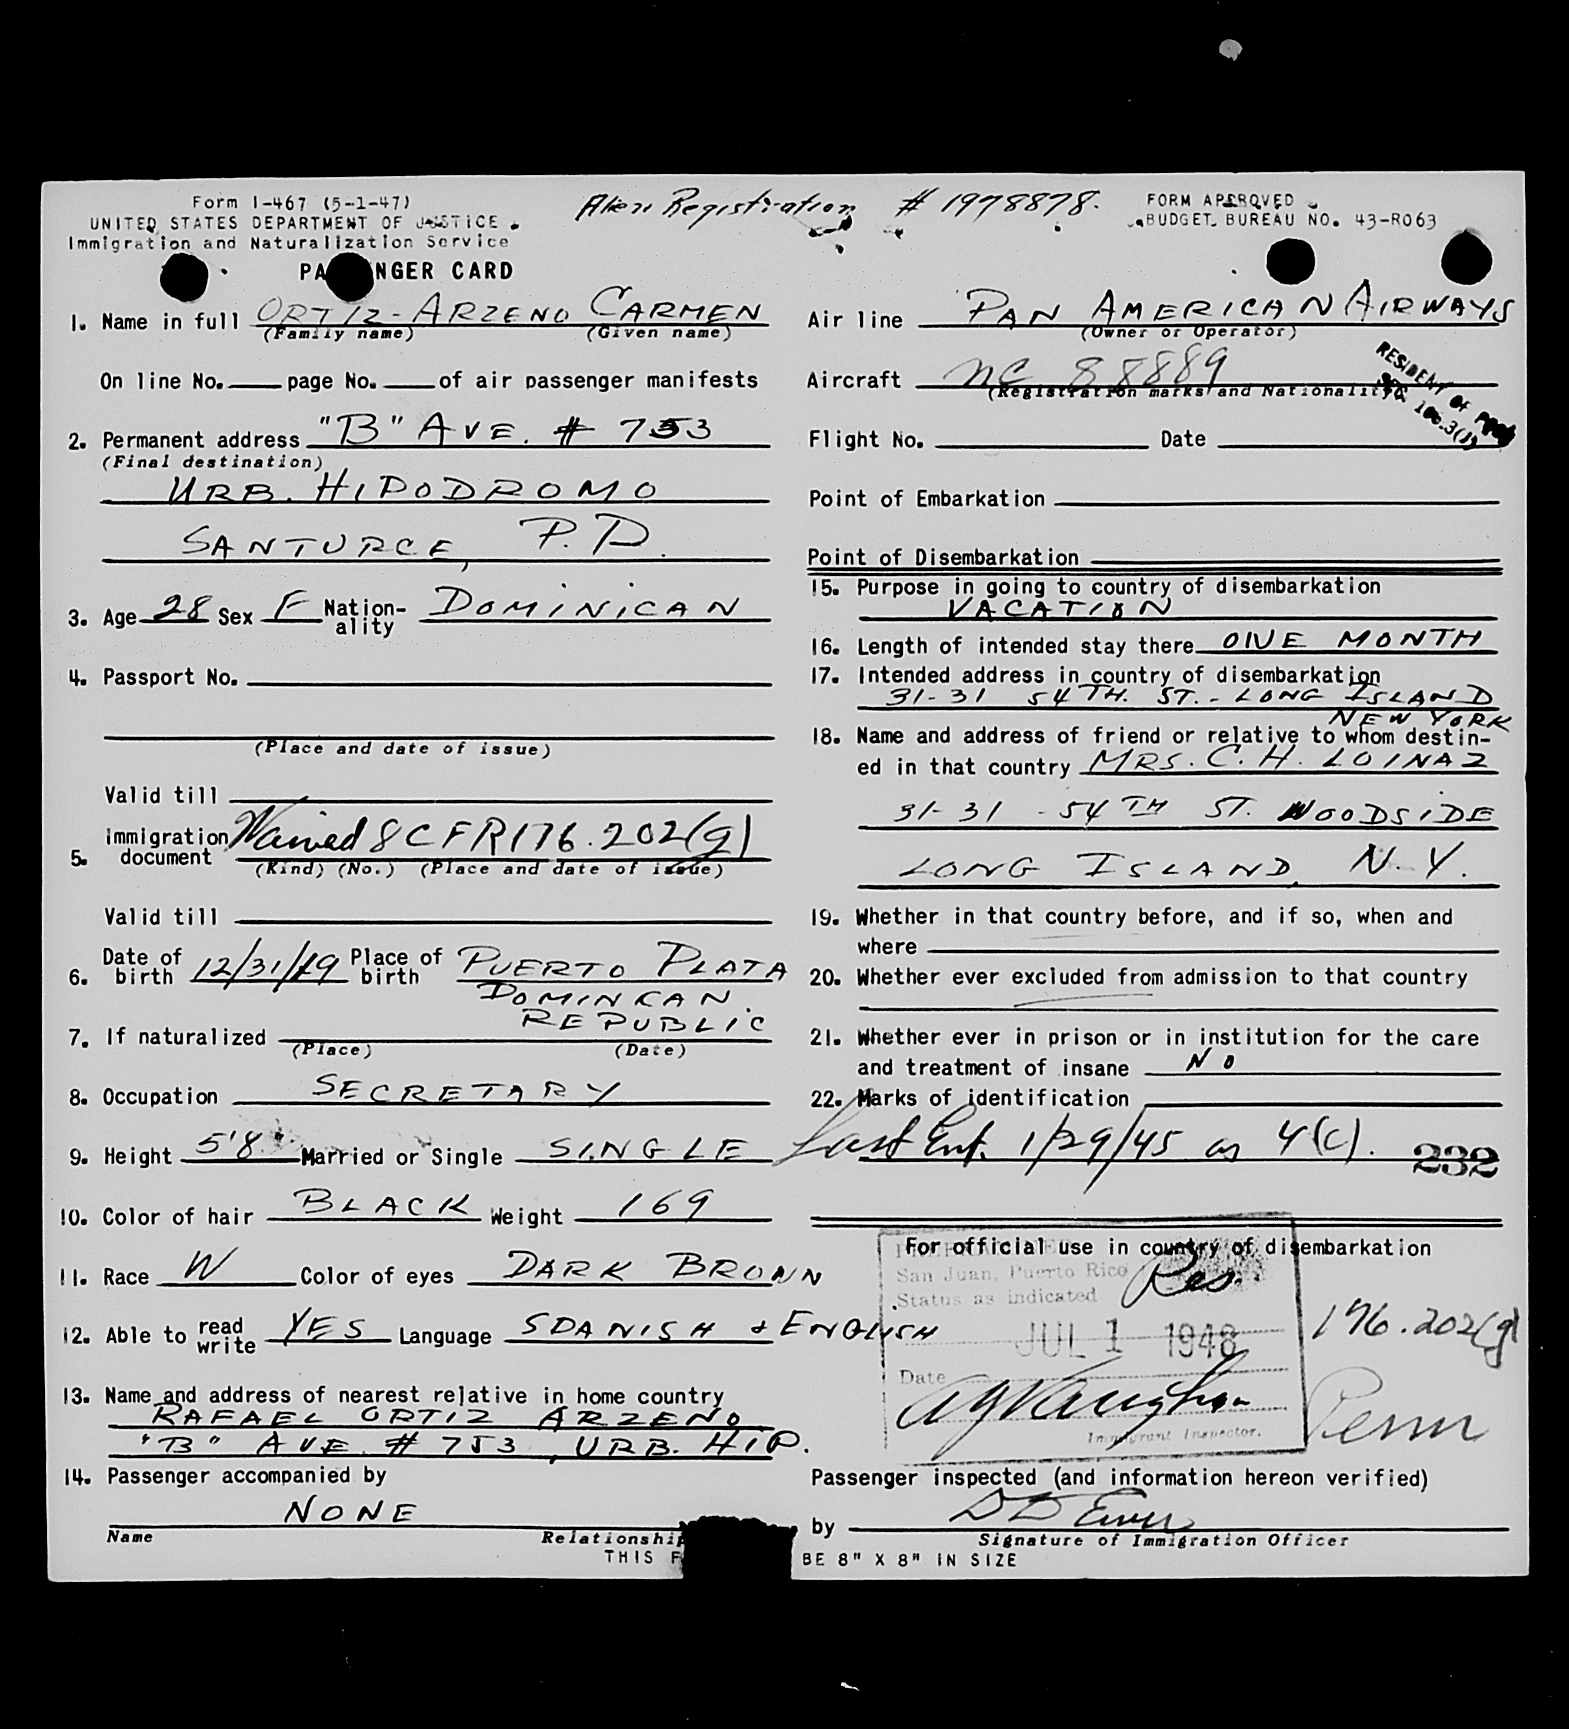 Form I-467 (5-1-47)
UNITED STATES DEPARTMENT OF JUSTICE
Immigration and Naturalization Service
PA NGER CARD
Alien Registration # 1978878.
FORM APPROVED
BUDGET BUREAU NO. 43-R063
1. Name in full ORTIZ-ARZENO CARMEN
(Family name) (Given name)
On line No. page No. of air passenger manifests
2. Permanent address "B" AVE. # 753
(Final destination)
URB. HIPODROMO
SANTURCE, P.R.
3. Age 28 Sex F Nation-ality DOMINICAN
4. Passport No.
(Place and date of issue)
Valid till
5. immigration document Waived 8 CFR 176.202(g)
(Kind) (No.) (Place and date of issue)
Valid till
6. Date of birth 12/31/19 Place of birth PUERTO PLATA
DOMINICAN
REPUBLIC
7. If naturalized
(Place) (Date)
8. Occupation SECRETARY
9. Height 5'8" Married or Single SINGLE
10. Color of hair BLACK Weight 169
11. Race W Color of eyes DARK BROWN
12. Able to read write YES Language SPANISH & ENGLISH
13. Name and address of nearest relative in home country
RAFAEL ORTIZ ARZENO
"B" AVE. # 753, URB. HIP.
14. Passenger accompanied by
NONE
Name Relationship
THIS F BE 8" X 8" IN SIZE
Air line PAN AMERICAN AIRWAYS
(Owner or Operator)
Aircraft NC 88889
(Registration marks and Nationality)
RESIDENT OF
Flight No. Date
Point of Embarkation
Point of Disembarkation
15. Purpose in going to country of disembarkation
VACATION
16. Length of intended stay there ONE MONTH
17. Intended address in country of disembarkation
31-31 54TH. ST. - LONG ISLAND
NEW YORK
18. Name and address of friend or relative to whom destin-
ed in that country MRS. C. H. LOINAZ
31-31 - 54TH ST. WOODSIDE
LONG ISLAND, N.Y.
19. Whether in that country before, and if so, when and
where
20. Whether ever excluded from admission to that country
21. Whether ever in prison or in institution for the care
and treatment of insane NO
22. Marks of identification
Last Ent. 1/29/45 as 4(c).
232
For official use in country of disembarkation
San Juan, Puerto Rico
Status as indicated Res.
JUL 1 1948
Date
Immigrant Inspector.
176.202(g)
Perm
Passenger inspected (and information hereon verified)
by
Signature of Immigration Officer